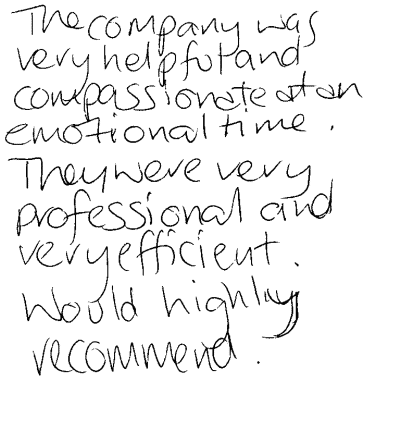 The company was
very helpful and
compassionate at an
emotional time.
They were very
professional and
very efficient.
Would highly
recommend.